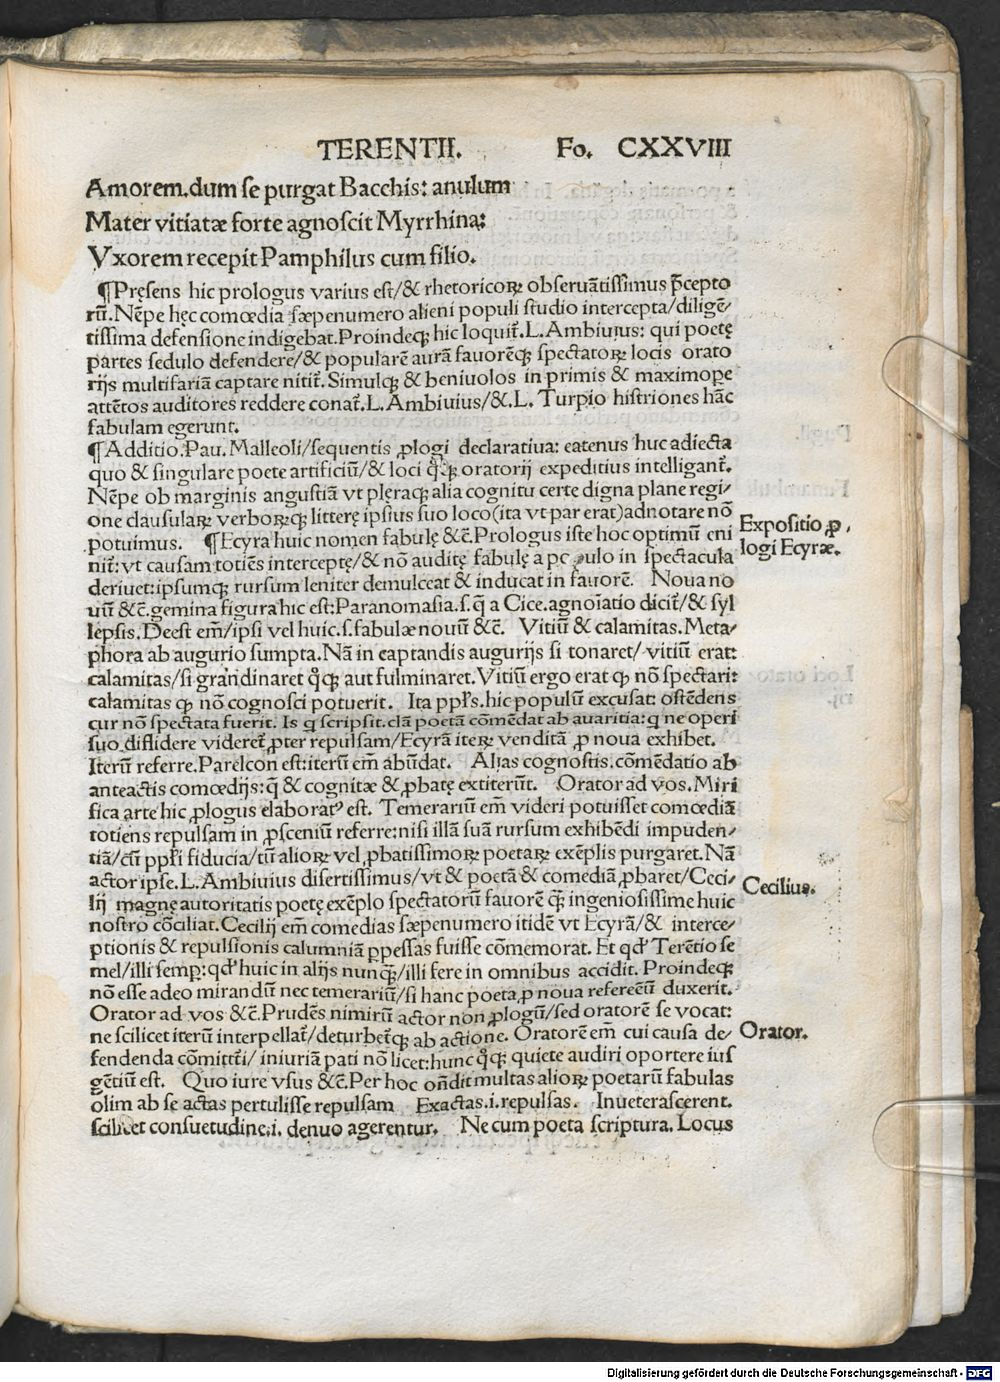 TERENTII. Fo. CXXVIII
Amorem. dum se purgat Bacchis: anulum
Mater vitiatæ forte agnoscit Myrrhina:
Vxorem recepit Pamphilus cum filio.
¶Pręsens hic prologus varius est/& rhetoricoꝝ obseruãtissimus p̃cepto
rũ. Nẽpe hęc comœdia sæpenumero alieni populi studio intercepta/diligẽ/
tissima defensione indigebat. Proindeqꝫ hic loquit̃. L. Ambiuius: qui poetę
partes sedulo defendere/& popularẽ aurã fauorẽqꝫ spectatoꝝ locis orato
rijs multifariã captare nitit̃. Simulqꝫ & beniuolos in primis & maximoꝑe
attẽtos auditores reddere conat̃. L. Ambiuius/&. L. Turpio histriones hãc
fabulam egerunt.
¶Additio. Pau. Malleoli/sequentis ꝓlogi declaratiua: eatenus huc adiecta
quo & singulare poete artificiũ/& loci q̃qꝫ oratorij expeditius intelligant̃.
Nẽpe ob marginis angustiã vt plęraqꝫ alia cognitu certe digna plane regi/
one clausulaꝝ verboꝝqꝫ litterę ipsius suo loco(ita vt par erat)adnotare nõ
potuimus. ¶Ecyra huic nomen fabulę &c̃. Prologus iste hoc optimũ eni
nit̃: vt causam totiẽs interceptę/& nõ auditę fabulę a populo in spectacula
deriuet: ipsumqꝫ rursum leniter demulceat & inducat in fauorẽ. Noua no
uũ &c̃. gemina figura hic est: Paranomasia. s. q̃ a Cice. agnoĩatio dicit̃/& syl
lepsis. Deest em̃/ipsi vel huic. s. fabulæ nouũ &c̃. Vitiũ & calamitas. Meta/
phora ab augurio sumpta. Nã in captandis augurijs si tonaret/vitiũ erat:
calamitas/si grandinaret q̊qꝫ aut fulminaret. Vitiũ ergo erat ꝙ nõ spectari:
calamitas ꝙ nõ cognosci potuerit. Ita ppl̃s. hic populũ excusat: ostẽdens
cur nõ spectata fuerit. Is q scripsit. clã poetã cõmẽdat ab auaritia: q ne operi
suo diffidere videret̃ ꝓter repulsam/Ecyrã iteꝝ venditã ꝓ noua exhibet.
Iterũ referre. Parelcon est: iterũ em̃ abũdat. Alias cognostis. cõmẽdatio ab
anteactis comœdijs: q̃ & cognitæ & ꝓbatę extiterũt. Orator ad vos. Miri
fica arte hic ꝓlogus elaboratꝰ est. Temerariũ em̃ videri potuisset comœdiã
totiens repulsam in ꝓsceniũ referre: nisi illã suã rursum exhibẽdi impuden/
tiã/cũ ppl̃i fiducia/tũ alioꝝ vel ꝓbatissimoꝝ poetaꝝ exẽplis purgaret. Nã
actor ipse. L. Ambiuius disertissimus/vt & poetã & comediã ꝓbaret/Ceci/
lij magnę autoritatis poetę exẽplo spectatorũ fauorẽ q̃qꝫ ingeniosissime huic
nostro cõciliat. Cecilij em̃ comedias sæpenumero itidẽ vt Ecyrã/& interce/
ptionis & repulsionis calumniã ꝑpessas fuisse cõmemorat. Et qd̛ Terẽtio se
mel/illi semꝑ: qd̛ huic in alijs nunqꝫ̃/illi fere in omnibus accidit. Proindeqꝫ
nõ esse adeo mirandũ nec temerariũ/si hanc poeta ꝓ noua refereẽũ duxerit.
Orator ad vos &c̃. Prudẽs nimirũ actor non ꝓlogũ/sed oratorẽ se vocat:
ne scilicet iterũ interpellat̃/deturbet̃qꝫ ab actione. Oratorẽ em̃ cui causa de/
fendenda cõmittit̃/iniuriã pati nõ licet: hunc q̊qꝫ quiete audiri oportere ius
gẽtiũ est. Quo iure vsus &c̃. Per hoc oñdit multas alioꝝ poetarũ fabulas
olim ab se actas pertulisse repulsam Exactas. i. repulsas. Inueterascerent.
scilicet consuetudine; i. denuo agerentur. Ne cum poeta scriptura. Locus
Expositio ꝓ,
logi Ecyræ.
Cecilius.
Orator.
Digitalisierung gefördert durch die Deutsche Forschungsgemeinschaft - DFG